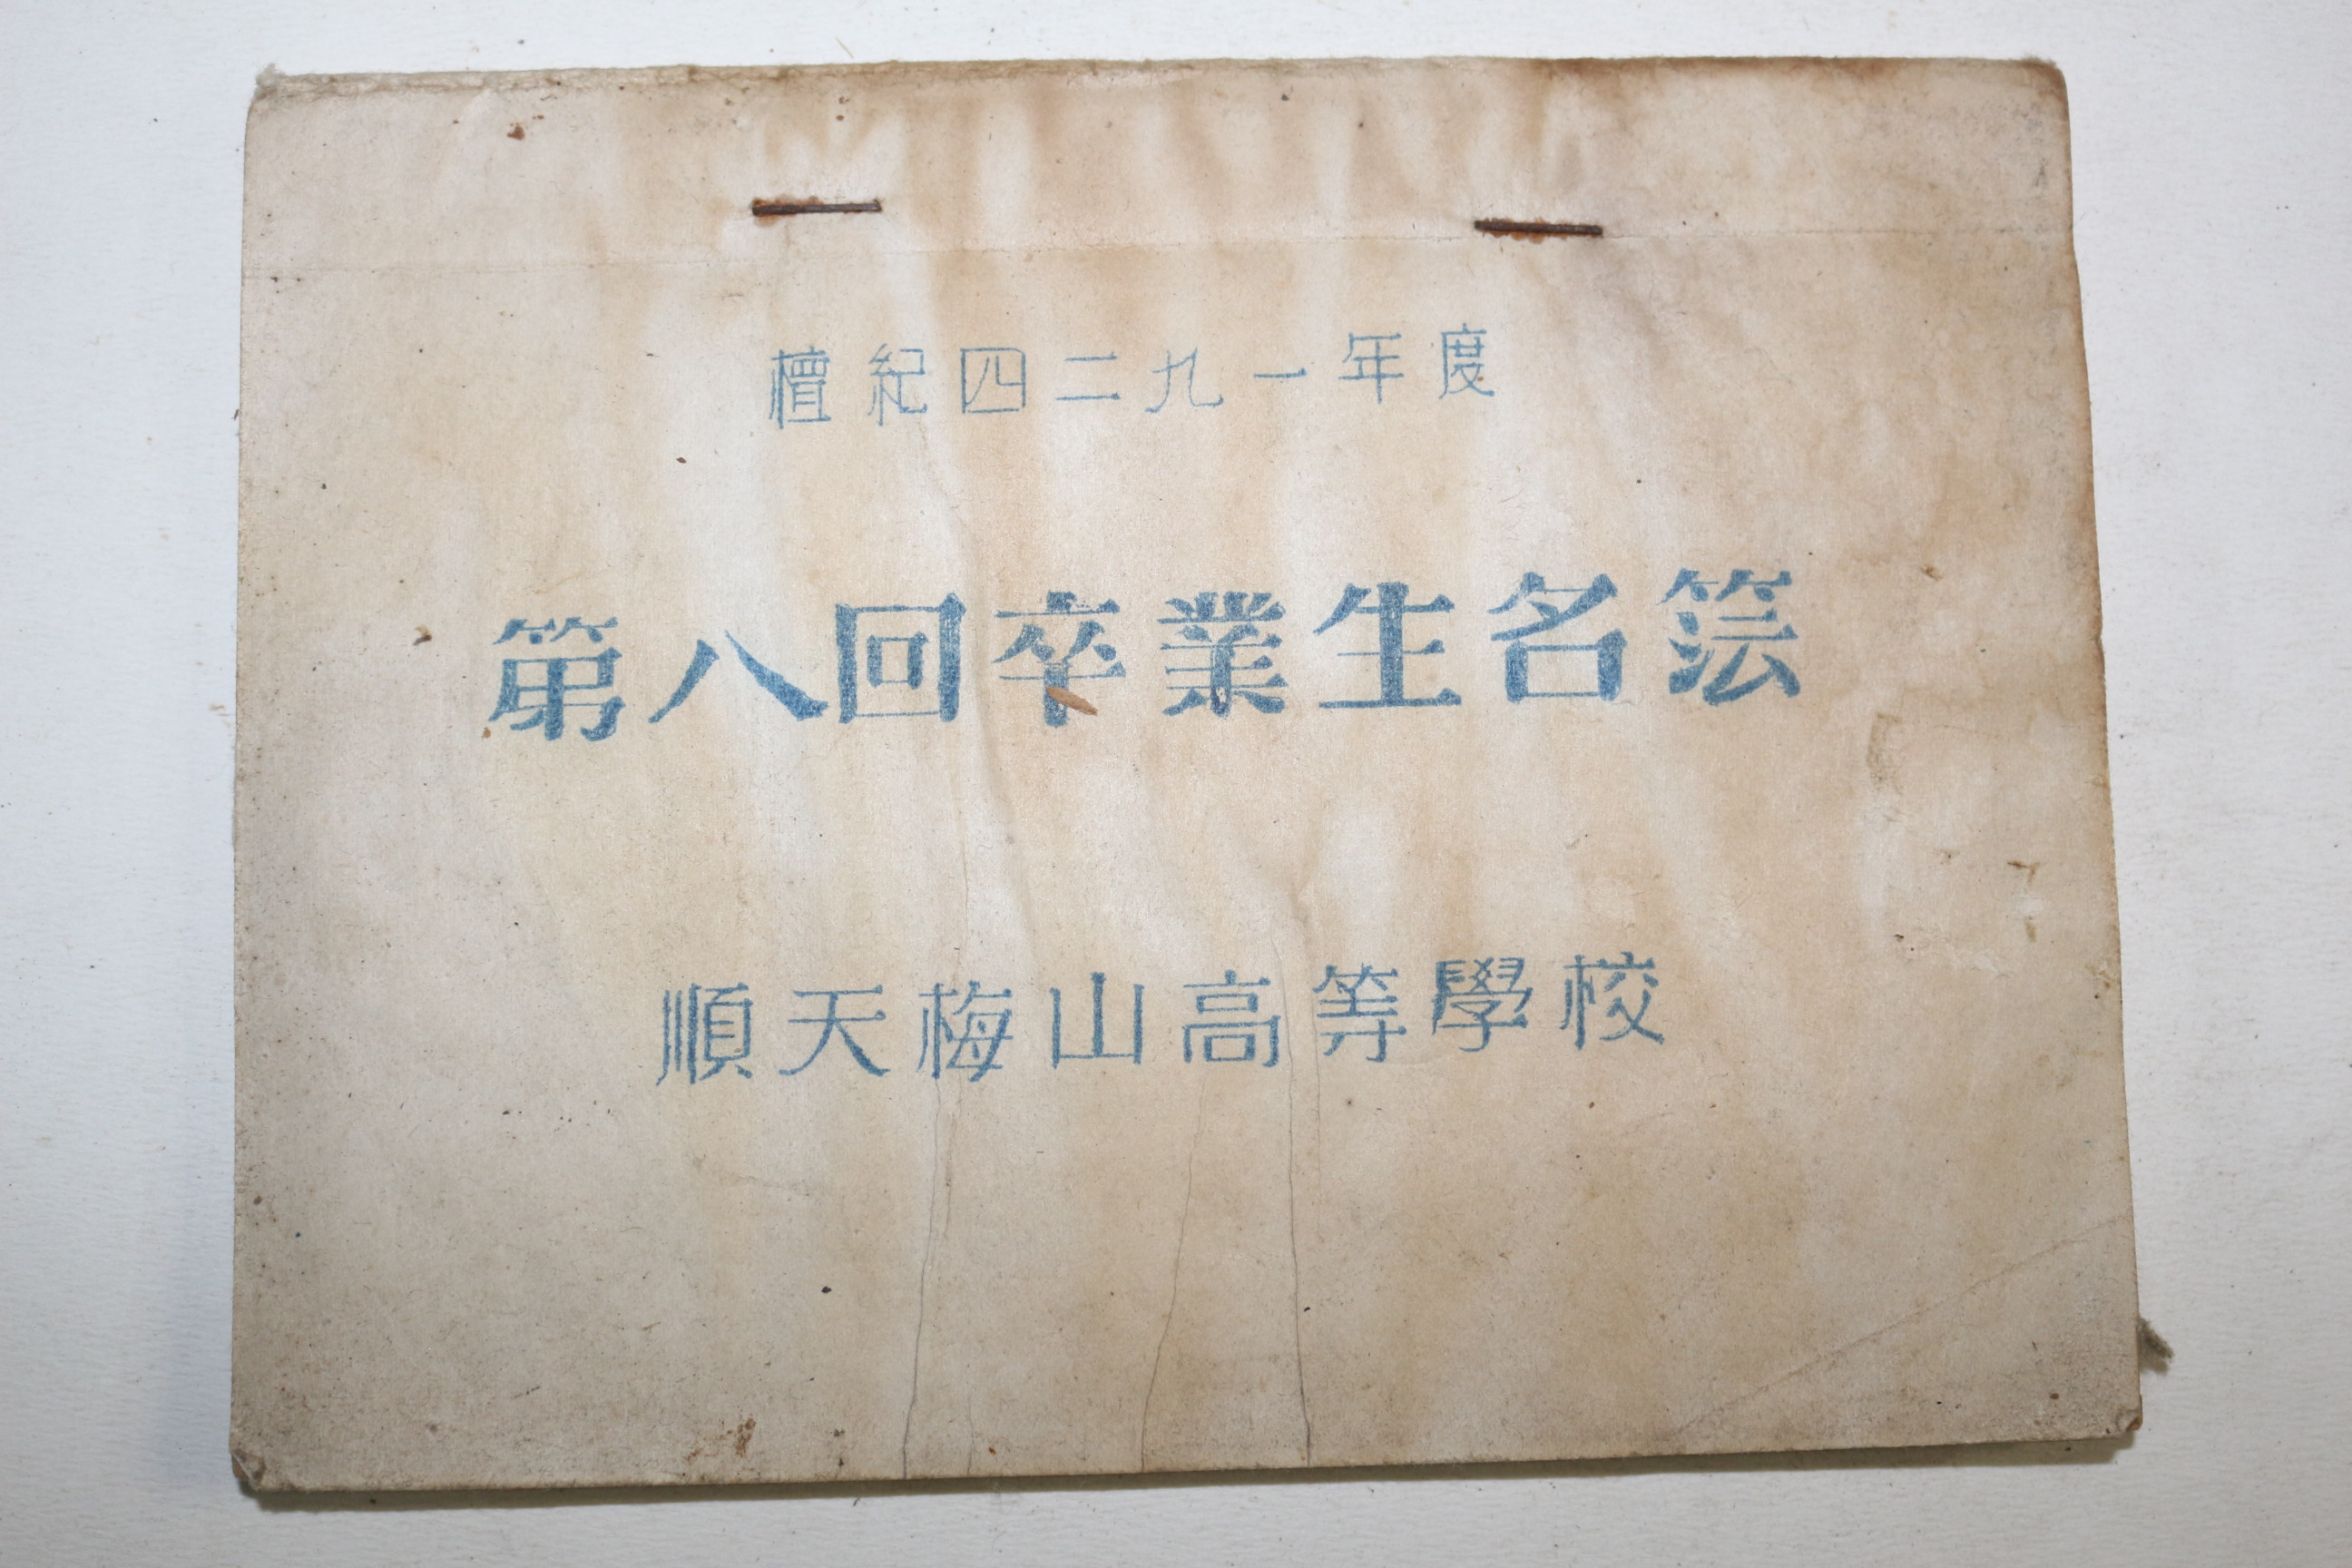 檀紀四二九一年度
第八回卒業生名簿
順天梅山高等學校